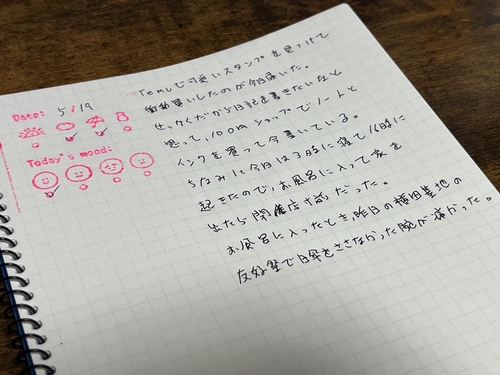 Date: 5/19
Today's mood:
Temuで可愛いスタンプを見つけて
衝動買いしたのが今日届いた。
せっかくだから日記を書きたいなと
思って、100円ショップでノートと
インクを買って今書いている。
ちなみに今日は3時に寝て16時に
起きたので、お風呂に入って家を
出たら閉店寸前だった。
お風呂に入ったとき、昨日の横田基地の
友好祭で日傘をささなかった腕が痛かった。